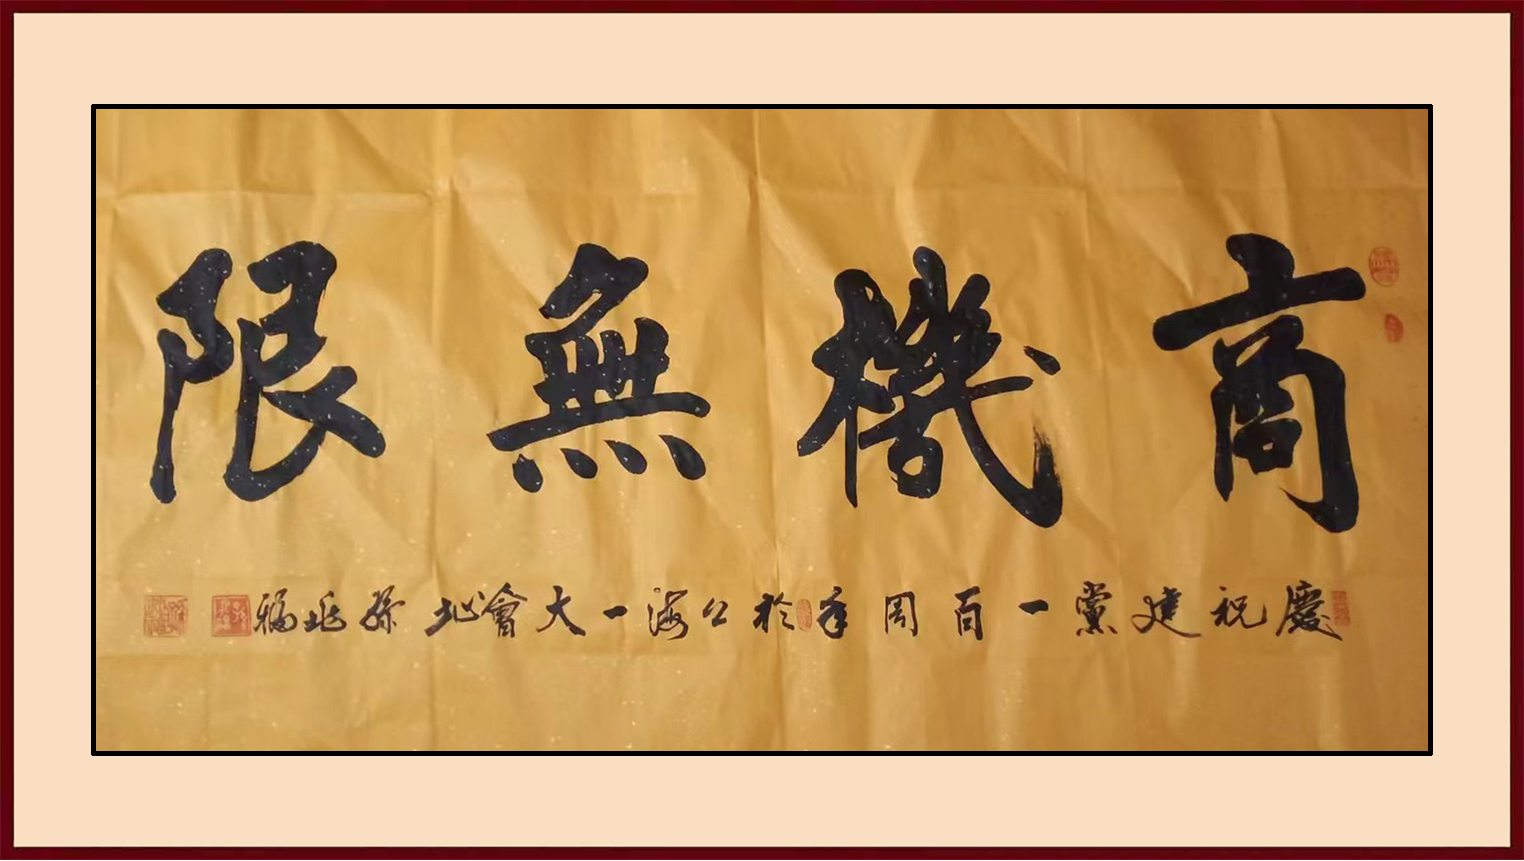 商機無限
慶祝建黨一百周年於上海一大會址孫兆福